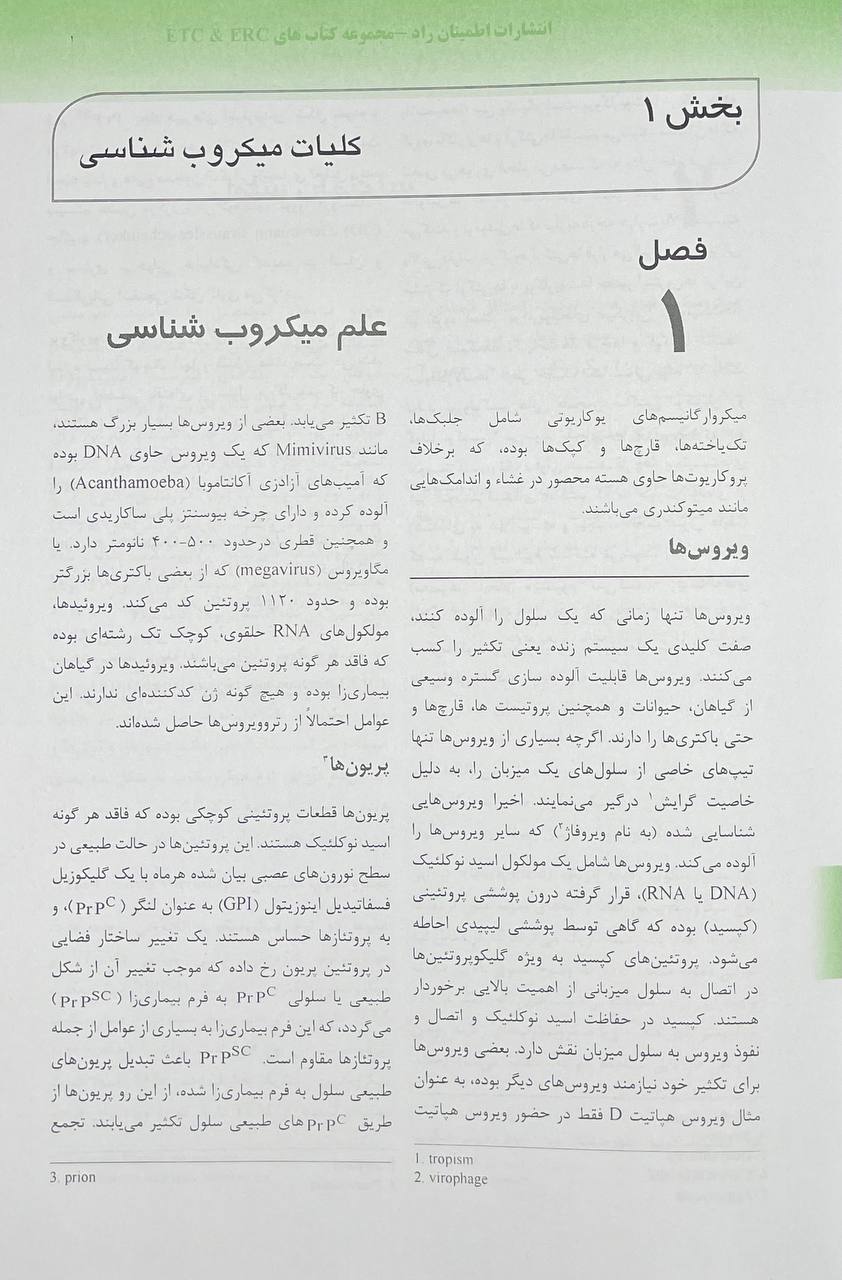 انتشارات اطمینان راد – مجموعه کتاب های ETC & ERC
۱
بخش ۱
کلیات میکروب شناسی
فصل
۱
علم میکروب شناسی
میکروارگانیسم‌های یوکاریوتی شامل جلبک‌ها،
تک‌یاخته‌ها، قارچ‌ها و کپک‌ها بوده، که برخلاف
پروکاریوت‌ها حاوی هسته محصور در غشاء و اندامک‌هایی
مانند میتوکندری می‌باشند.
ویروس‌ها
ویروس‌ها تنها زمانی که یک سلول را آلوده کنند،
صفت کلیدی یک سیستم زنده یعنی تکثیر را کسب
می‌کنند. ویروس‌ها قابلیت آلوده سازی گستره وسیعی
از گیاهان، حیوانات و همچنین پروتیست ها، قارچ‌ها و
حتی باکتری‌ها را دارند. اگرچه بسیاری از ویروس‌ها تنها
تیپ‌های خاصی از سلول‌های یک میزبان را، به دلیل
خاصیت گرایش۱ درگیر می‌نمایند. اخیرا ویروس‌هایی
شناسایی شده (به نام ویروفاژ۲) که سایر ویروس‌ها را
آلوده می‌کند. ویروس‌ها شامل یک مولکول اسید نوکلئیک
(DNA یا RNA)، قرار گرفته درون پوششی پروتئینی
(کپسید) بوده که گاهی توسط پوششی لیپیدی احاطه
می‌شود. پروتئین‌های کپسید به ویژه گلیکوپروتئین‌ها
در اتصال به سلول میزبانی از اهمیت بالایی برخوردار
هستند. کپسید در حفاظت اسید نوکلئیک و اتصال و
نفوذ ویروس به سلول میزبان نقش دارد. بعضی ویروس‌ها
برای تکثیر خود نیازمند ویروس‌های دیگر بوده، به عنوان
مثال ویروس هپاتیت D فقط در حضور ویروس هپاتیت
1. tropism
2. virophage
B تکثیر می‌یابد. بعضی از ویروس‌ها بسیار بزرگ هستند،
مانند Mimivirus که یک ویروس حاوی DNA بوده
که آمیب‌های آزادزی آکانتاموبا (Acanthamoeba) را
آلوده کرده و دارای چرخه بیوسنتز پلی ساکاریدی است
و همچنین قطری درحدود ۵۰۰-۴۰۰ نانومتر دارد. یا
مگاویروس (megavirus) که از بعضی باکتری‌ها بزرگتر
بوده و حدود ۱۱۲۰ پروتئین کد می‌کند. ویروئیدها،
مولکول‌های RNA حلقوی، کوچک تک رشته‌ای بوده
که فاقد هر گونه پروتئین می‌باشند. ویروئیدها در گیاهان
بیماری‌زا بوده و هیچ گونه ژن کدکننده‌ای ندارند. این
عوامل احتمالاً از رتروویروس‌ها حاصل شده‌اند.
پریون‌ها۳
پریون‌ها قطعات پروتئینی کوچکی بوده که فاقد هر گونه
اسید نوکلئیک هستند. این پروتئین‌ها در حالت طبیعی در
سطح نورون‌های عصبی بیان شده هرماه با یک گلیکوزیل
فسفاتیدیل اینوزیتول (GPI) به عنوان لنگر (PrP^C)، و
به پروتئازها حساس هستند. یک تغییر ساختار فضایی
در پروتئین پریون رخ داده که موجب تغییر آن از شکل
طبیعی یا سلولی PrP^C به فرم بیماری‌زا (PrP^SC)
می‌گردد، که این فرم بیماری‌زا به بسیاری از عوامل از جمله
پروتئازها مقاوم است. PrP^SC باعث تبدیل پریون‌های
طبیعی سلول به فرم بیماری‌زا شده، از این رو پریون‌ها از
طریق PrP^C های طبیعی سلول تکثیر می‌یابند. تجمع
3. prion